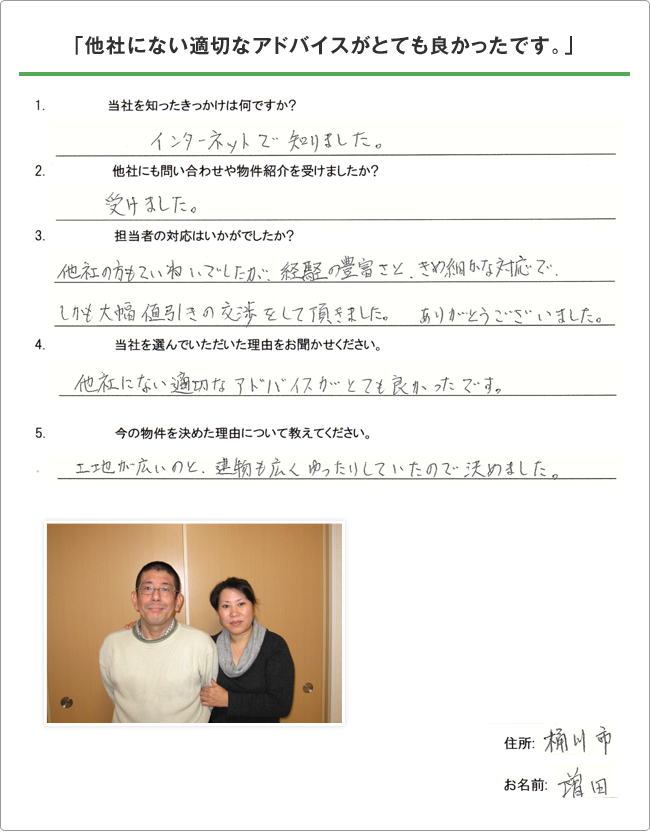 「他社にない適切なアドバイスがとても良かったです。」
1. 当社を知ったきっかけは何ですか?
インターネットで知りました。
2. 他社にも問い合わせや物件紹介を受けましたか?
受けました。
3. 担当者の対応はいかがでしたか?
他社の方もていねいでしたが、経験の豊富さと、きめ細かな対応で、
しかも大幅値引きの交渉をして頂きました。 ありがとうございました。
4. 当社を選んでいただいた理由をお聞かせください。
他社にない適切なアドバイスがとても良かったです。
5. 今の物件を決めた理由について教えてください。
土地が広いのと、建物も広くゆったりしていたので決めました。
住所: 桶川市
お名前: 増田